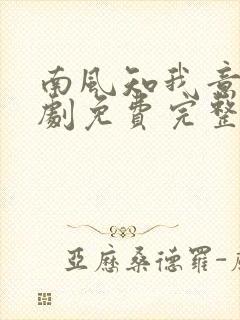 南風知我意
劇免費完整
亞歷桑德羅-